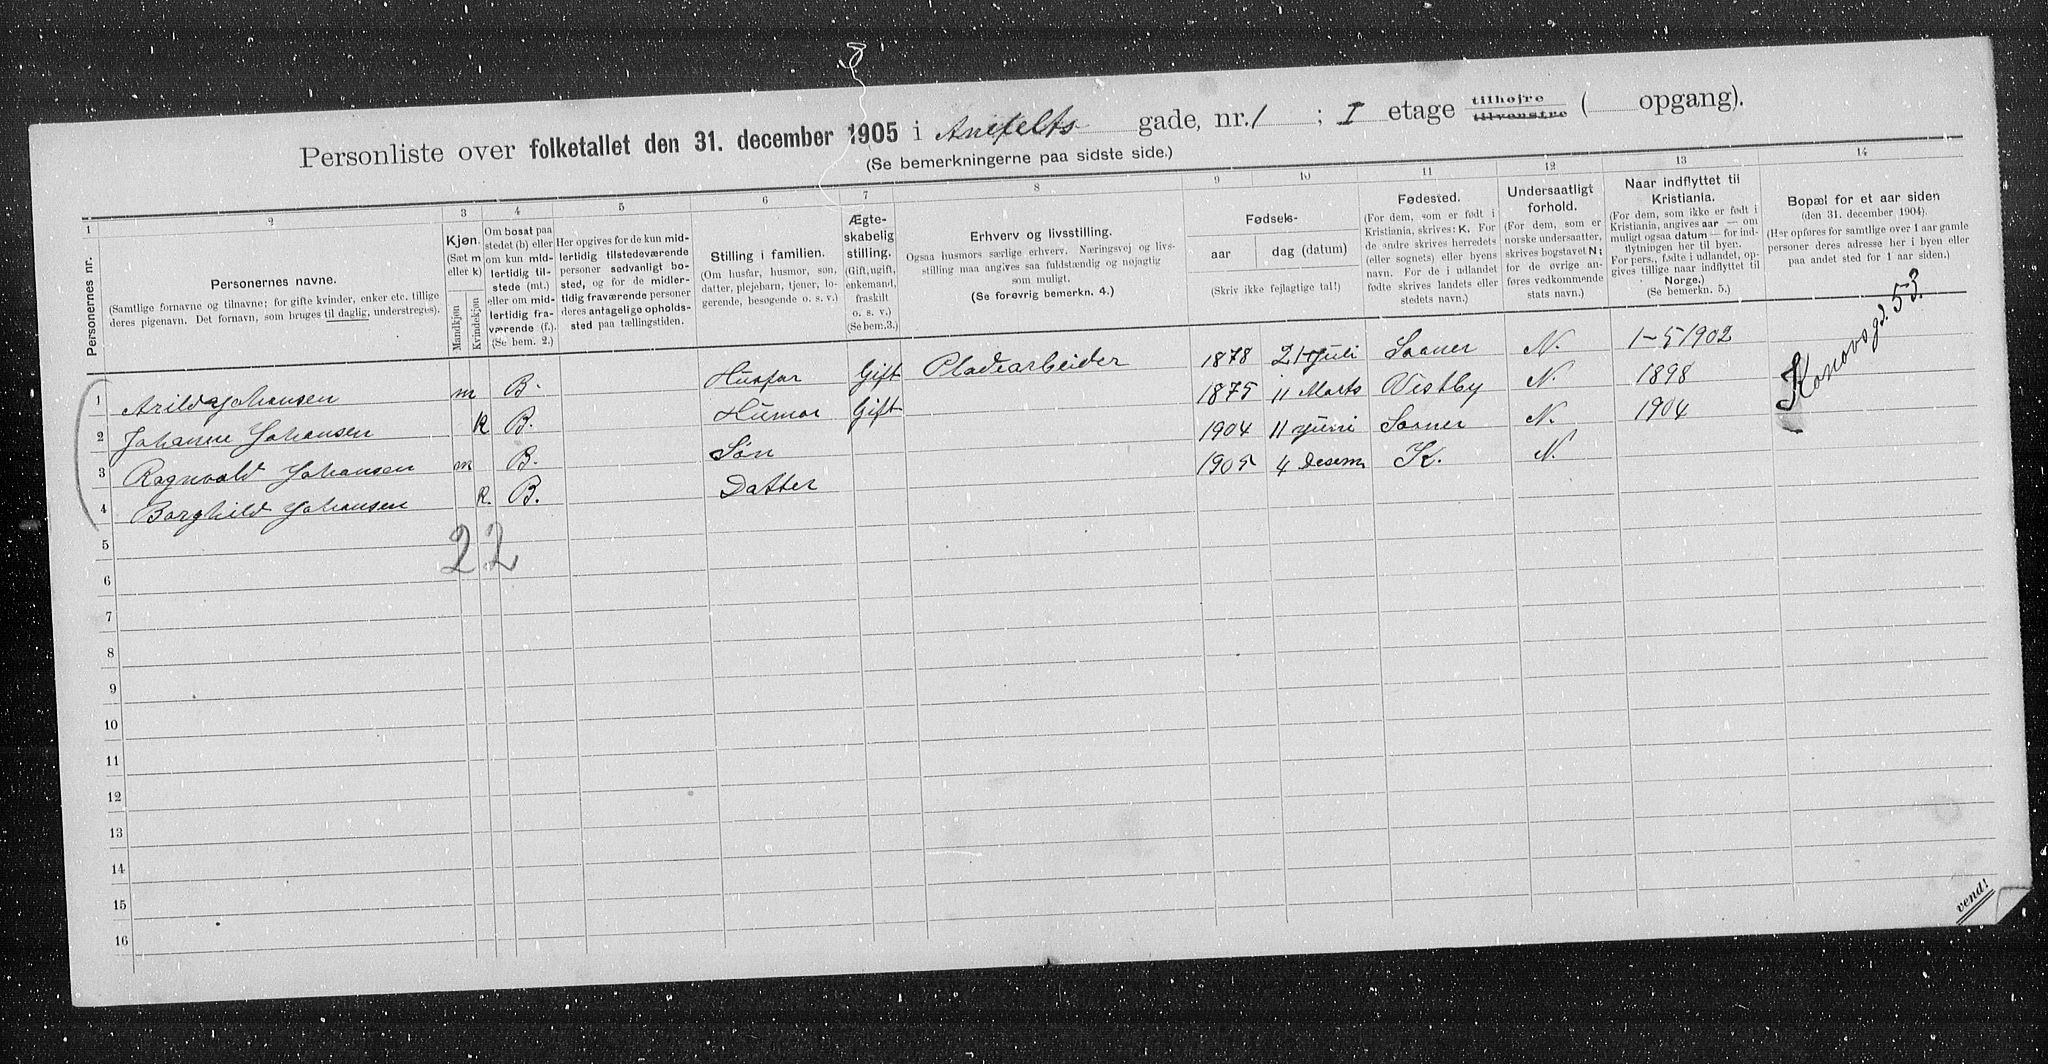 Personliste over folketallet den 31. december 1905 i Anefelts gade, nr. 1 ; I etage tilhøjre tilvenstre ( opgang).
(Se bemerkningerne paa sidste side.)
1 2 3 4 5 6 7 8 9 10 11 12 13 14
Personernes nr.
Personernes navne.
(Samtlige fornavne og tilnavne; for gifte kvinder, enker etc. tillige
deres pigenavn. Det fornavn, som bruges til daglig, understreges).
Kjøn.
(Sæt m
eller k)
Mandkjøn
Kvindekjøn
Om bosat paa
stedet (b) eller
om kun mid-
lertidig til-
stede (mt.)
eller om mid-
lertidig fra-
værende (f.).
(Se bem. 2.)
Her opgives for de kun mid-
lertidig tilstedeværende
personer sedvanligt bo-
sted, og for de midler-
tidig fraværende personer
deres antagelige opholds-
sted paa tællingstiden.
Stilling i familien.
(Om husfar, husmor, søn,
datter, plejebarn, tjener, lo-
gerende, besøgende o. s. v.)
Ægte-
skabelig
stilling.
(Gift, ugift,
enkemand,
fraskilt
o. s. v.)
(Se bem.3.)
Erhverv og livsstilling.
Ogsaa husmors særlige erhverv. Næringsvej og livs-
stilling maa angives saa fuldstændig og nøjagtig
som muligt.
(Se forøvrig bemerkn. 4.)
Fødsels-
aar dag (datum)
(Skriv ikke fejlagtige tal!)
Fødested.
(For dem, som er født i
Kristiania, skrives: K. For
de andre skrives herredets
(eller sognets) eller byens
navn. For de i udlandet
fødte skrives landets eller
stedets navn.)
Undersaatligt
forhold.
(For dem, som er
norske undersaatter,
skrives bogstavet N;
for de øvrige an-
føres vedkommende
stats navn.)
Naar indflyttet til
Kristiania.
(For dem, som ikke er født i
Kristiania, angives aar — om
muligt ogsaa datum — for ind-
flytningen her til byen.
For pers., fødte i udlandet, op-
gives tillige naar indflyttet til
Norge.)
(Se bemerkn. 5.)
Bopæl for et aar siden
(den 31. december 1904).
(Her opføres for samtlige over 1 aar gamle
personer deres adresse her i byen eller
paa andet sted for 1 aar siden.)
1 Arild Johansen m B. Husfar Gift Pladearbeider 1878 21 Juli Saaner N. 1-5 1902 Kanovsgd. 53.
2 Johanne Johansen k B. Husmor Gift 1875 11 Marts Vestby N. 1898
3 Ragnvald Johansen m B. Søn 1904 11 Juni Saaner N. 1904
4 Borghild Johansen k. B. Datter 1905 4 Desem K. N.
5
22
6
7
8
9
10
11
12
13
14
15
16
vend!